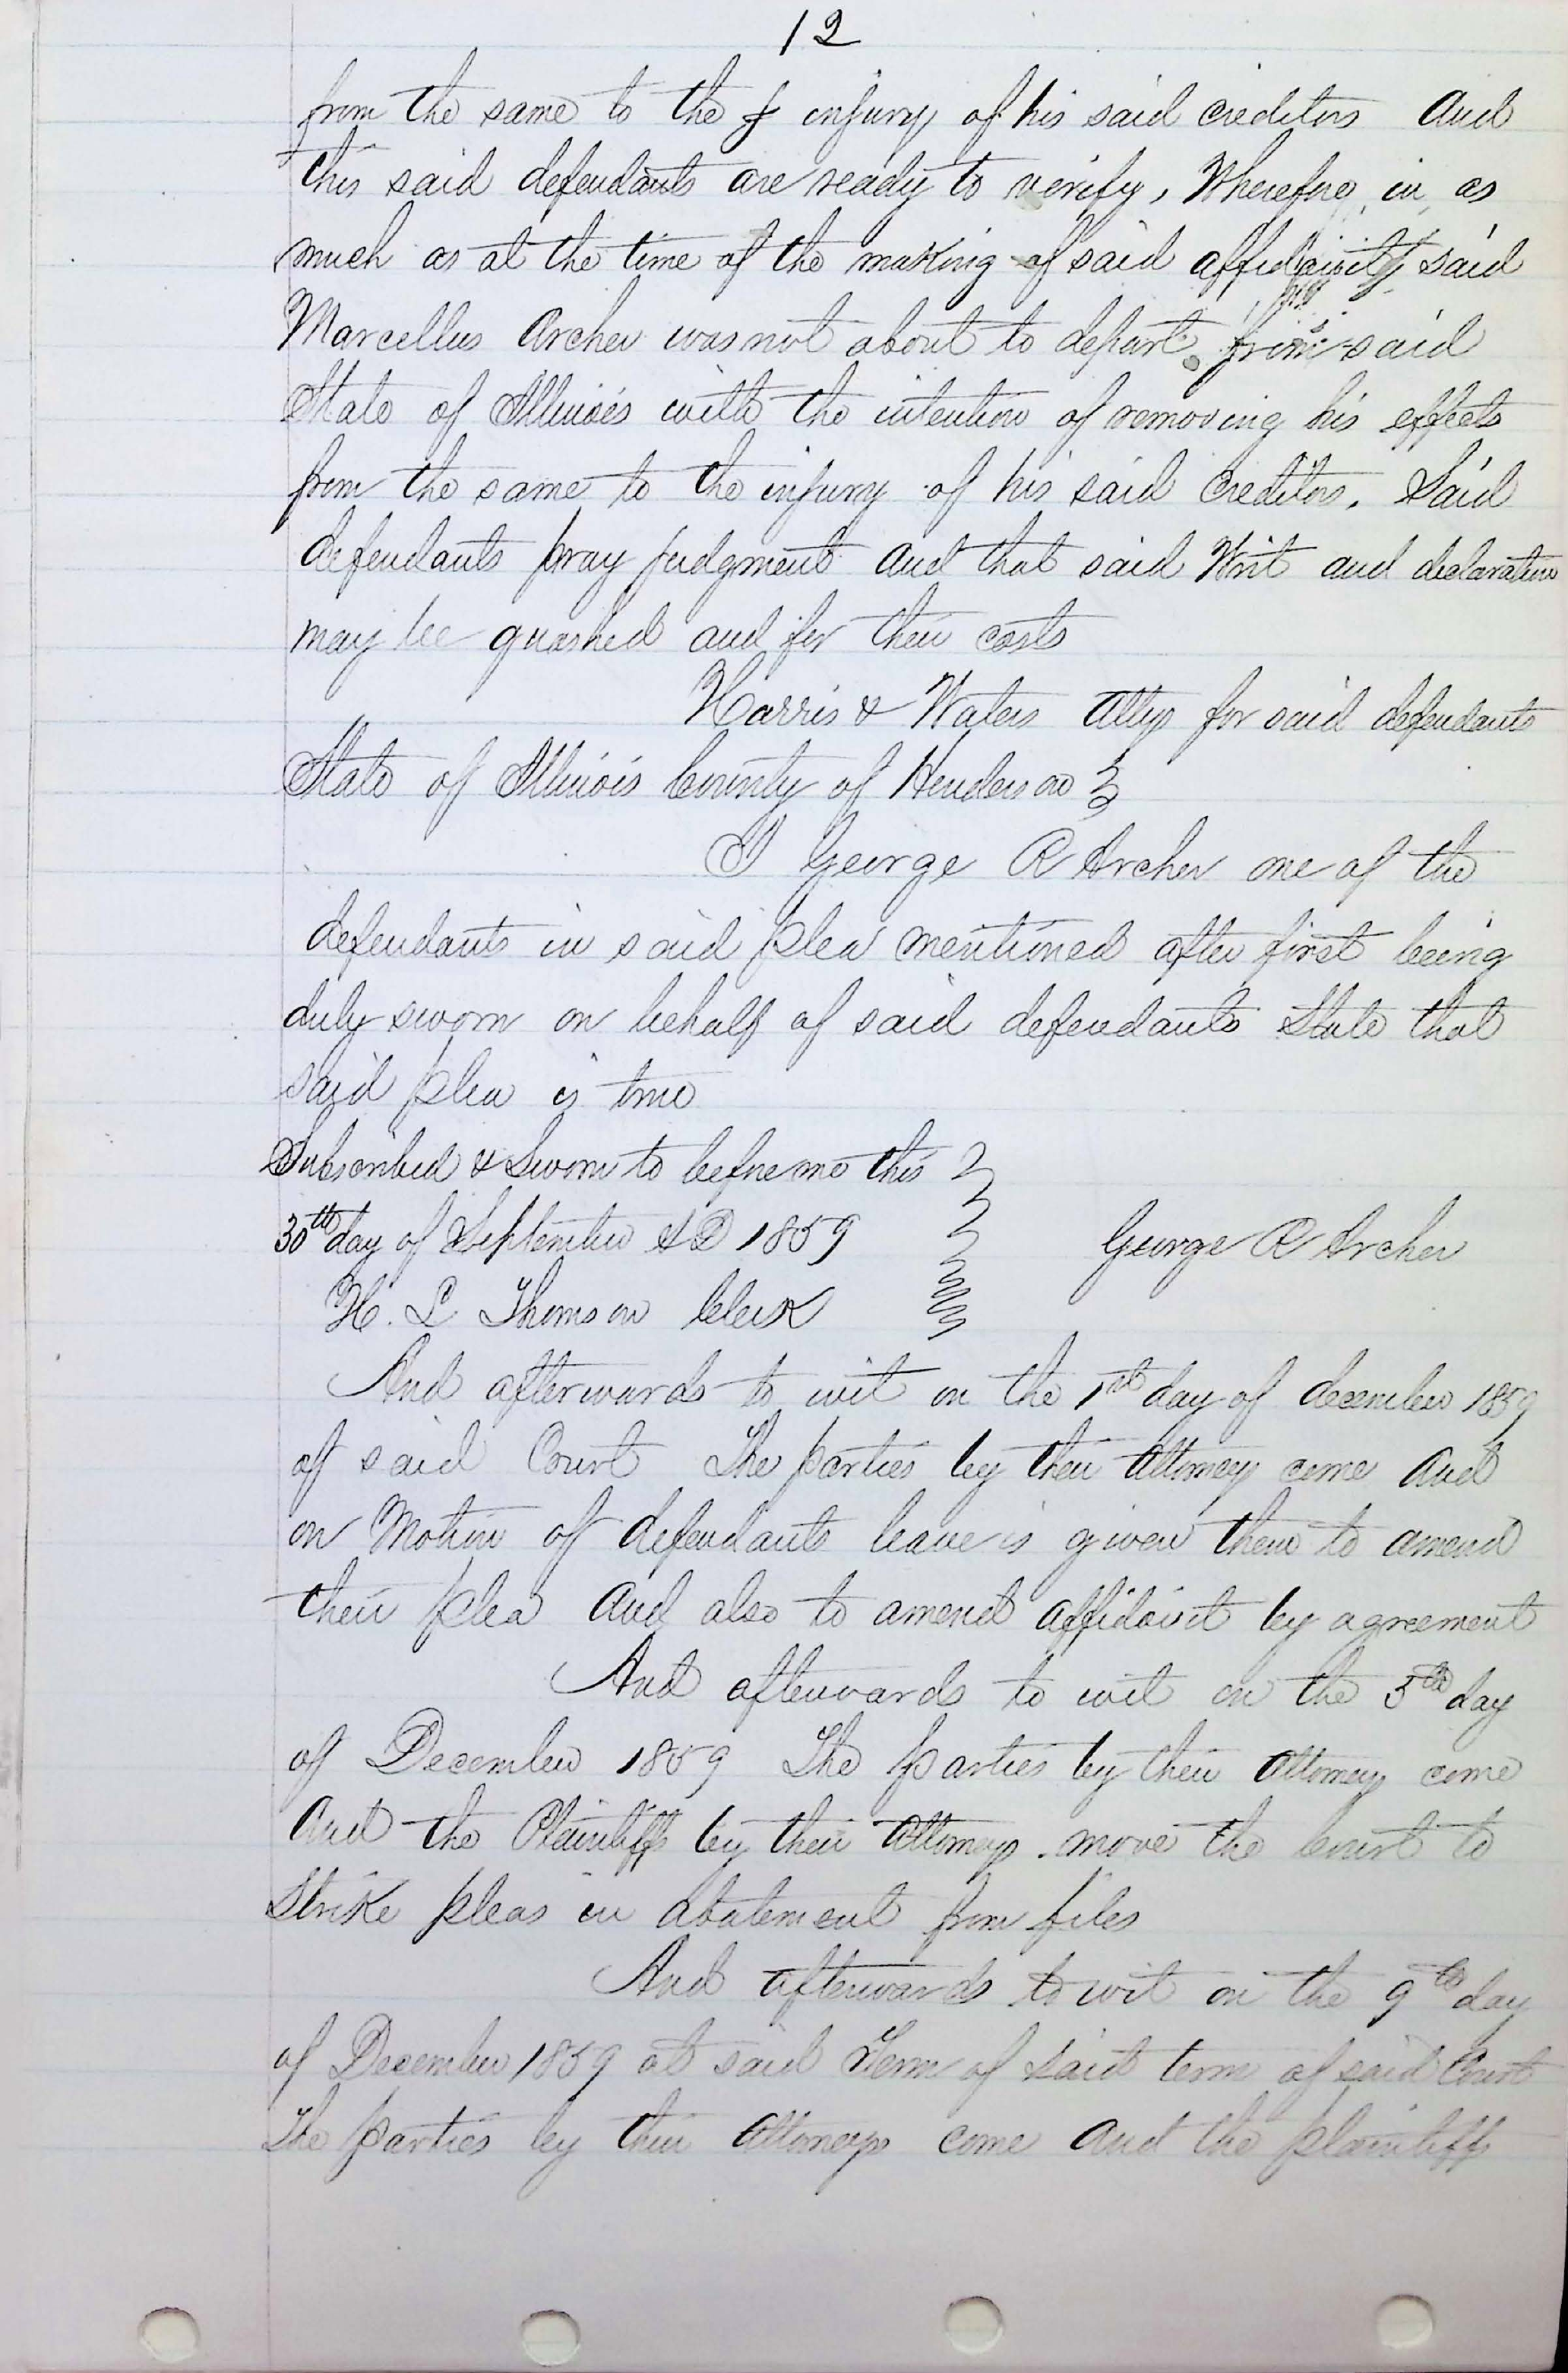 12
from the same to the f injury of his said creditors And
this said defendants are ready to verify, Wherefore in as
much as at the time of the making of said affidavit said
Marcellus Archer was not about to depart from said
State of Illinois with the intention of removing his effects
from the same to the injury of his said Creditors. Said
defendants pray judgment and that said Writ and declaration
may be quashed and for their costs
Harris & Waters Attys for said defendants
State of Illinois County of Henderson
I George R Archer one of the
defendants in said plea mentioned after first being
duly sworn on behalf of said defendants State that
said plea is true
Subscribed & Sworn to before me this
30th day of September AD 1859
George R Archer
H. L Thomson Clerk
And afterwards to wit on the 1st day of december 1859
of said Court The parties by their Attorneys come And
on Motion of defendants leave is given them to amend
their plea And also to amend affidavit by agreement
And afterwards to wit on the 5th day
of December 1859 The parties by their Attorneys come
And the Plaintiffs by their Attorneys move the Court to
Strike pleas in abatement from files
And afterwards to wit on the 9th day
of December 1859 at said Term of said term of said Court
The parties by their Attorneys come And the plaintiffs